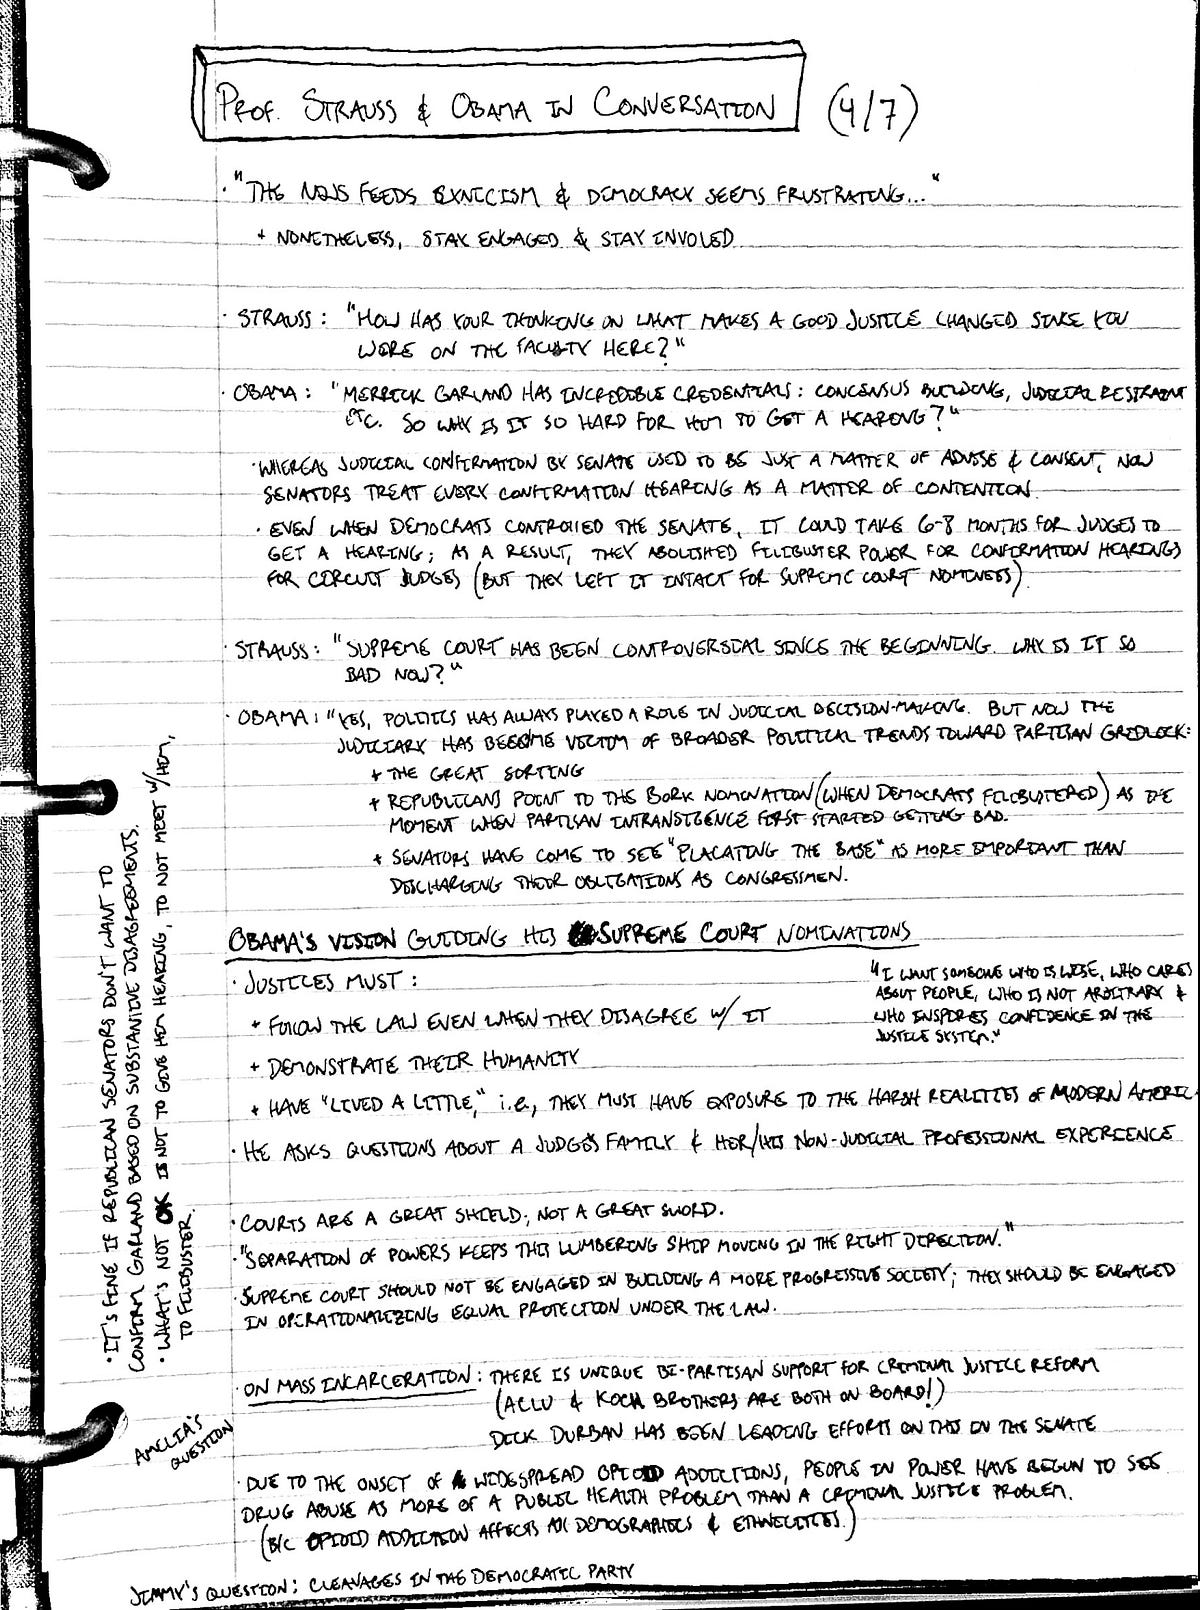 PROF. STRAUSS & OBAMA IN CONVERSATION (4/7)
· "THE NEWS FEEDS CYNICISM & DEMOCRACY SEEMS FRUSTRATING..."
+ NONETHELESS, STAY ENGAGED & STAY INVOLED
· STRAUSS: "HOW HAS YOUR THINKING ON WHAT MAKES A GOOD JUSTICE CHANGED SINCE YOU
WERE ON THE FACULTY HERE?"
· OBAMA: "MERRICK GARLAND HAS INCREDIBLE CREDENTIALS: CONCENSUS BUILDING, JUDICIAL RESTRAINT
ETC. SO WHY IS IT SO HARD FOR HIM TO GET A HEARING?"
· WHEREAS JUDICIAL CONFIRMATION BY SENATE USED TO BE JUST A MATTER OF ADVISE & CONSENT, NOW
SENATORS TREAT EVERY CONFIRMATION HEARING AS A MATTER OF CONTENTION.
· EVEN WHEN DEMOCRATS CONTROLLED THE SENATE, IT COULD TAKE 6-8 MONTHS FOR JUDGES TO
GET A HEARING; AS A RESULT, THEY ABOLISHED FILIBUSTER POWER FOR CONFIRMATION HEARINGS
FOR CIRCUIT JUDGES (BUT THEY LEFT IT INTACT FOR SUPREME COURT NOMINEES).
· STRAUSS: "SUPREME COURT HAS BEEN CONTROVERSIAL SINCE THE BEGINNING. WHY IS IT SO
BAD NOW?"
· OBAMA: "YES, POLITICS HAS ALWAYS PLAYED A ROLE IN JUDICIAL DECISION-MAKING. BUT NOW THE
JUDICIARY HAS BECOME VICTIM OF BROADER POLITICAL TRENDS TOWARD PARTISAN GRIDLOCK:
+ THE GREAT SORTING
+ REPUBLICANS POINT TO THE BORK NOMINATION (WHEN DEMOCRATS FILIBUSTERED) AS THE
MOMENT WHEN PARTISAN INTRANSIGENCE FIRST STARTED GETTING BAD.
+ SENATORS HAVE COME TO SEE "PLACATING THE BASE" AS MORE IMPORTANT THAN
DISCHARGING THEIR OBLIGATIONS AS CONGRESSMEN.
· IT'S FINE IF REPUBLICAN SENATORS DON'T WANT TO
CONFIRM GARLAND BASED ON SUBSTANTIVE DISAGREEMENTS.
· WHAT'S NOT OK IS NOT TO GIVE HIM HEARING, TO NOT MEET W/ HIM,
TO FILIBUSTER.
OBAMA'S VISION GUIDING HIS SUPREME COURT NOMINATIONS
· JUSTICES MUST:
+ FOLLOW THE LAW EVEN WHEN THEY DISAGREE W/ IT
+ DEMONSTRATE THEIR HUMANITY
"I WANT SOMEONE WHO IS WISE, WHO CARES
ABOUT PEOPLE, WHO IS NOT ARBITRARY &
WHO INSPIRES CONFIDENCE IN THE
JUSTICE SYSTEM."
+ HAVE "LIVED A LITTLE," i.e., THEY MUST HAVE EXPOSURE TO THE HARSH REALITIES OF MODERN AMERIC
· HE ASKS QUESTIONS ABOUT A JUDGE'S FAMILY & HER/HIS NON-JUDICIAL PROFESSIONAL EXPERIENCE
· COURTS ARE A GREAT SHIELD; NOT A GREAT SWORD.
· "SEPARATION OF POWERS KEEPS THIS LUMBERING SHIP MOVING IN THE RIGHT DIRECTION."
· SUPREME COURT SHOULD NOT BE ENGAGED IN BUILDING A MORE PROGRESSIVE SOCIETY; THEY SHOULD BE ENGAGED
IN OPERATIONALIZING EQUAL PROTECTION UNDER THE LAW.
· ON MASS INCARCERATION: THERE IS UNIQUE BI-PARTISAN SUPPORT FOR CRIMINAL JUSTICE REFORM
(ACLU & KOCH BROTHERS ARE BOTH ON BOARD!)
DICK DURBAN HAS BEEN LEADING EFFORTS ON THIS IN THE SENATE
AMELIA'S
QUESTION
· DUE TO THE ONSET OF WIDESPREAD OPIOID ADDICTIONS, PEOPLE IN POWER HAVE BEGUN TO SEE
DRUG ABUSE AS MORE OF A PUBLIC HEALTH PROBLEM THAN A CRIMINAL JUSTICE PROBLEM.
(B/C OPIOID ADDICTION AFFECTS ALL DEMOGRAPHICS & ETHNICITIES.)
JIMMY'S QUESTION: CLEAVAGES IN THE DEMOCRATIC PARTY